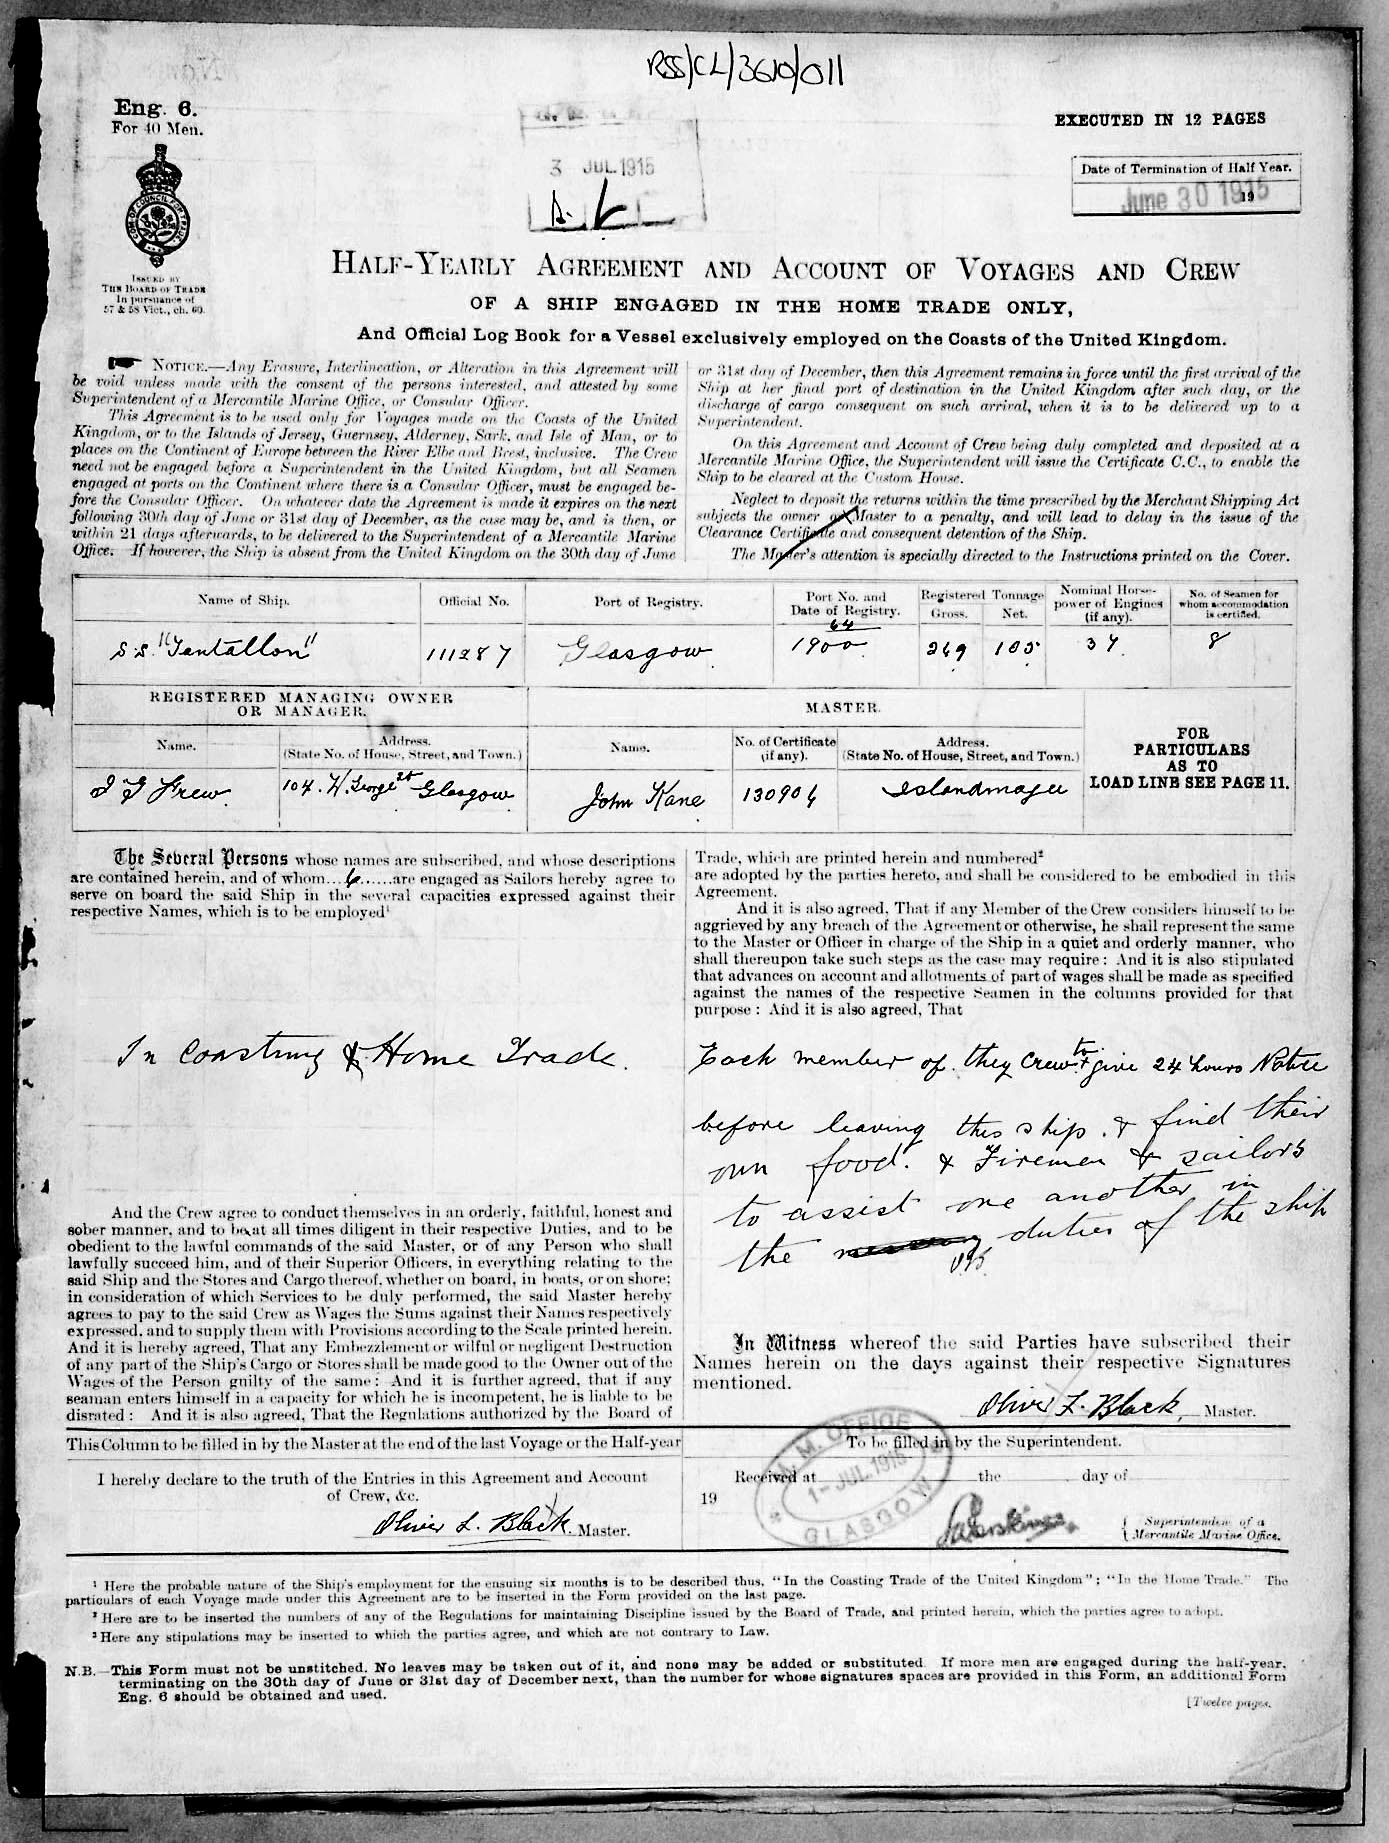 RSS/CL/3610/011
Eng. 6.
For 40 Men.
EXECUTED IN 12 PAGES
3 JUL.1915
Date of Termination of Half Year.
June 30 1915
19
ISSUED BY
THE BOARD OF TRADE
In pursuance of
57 & 58 Vict., ch. 60.
HALF-YEARLY AGREEMENT AND ACCOUNT OF VOYAGES AND CREW
OF A SHIP ENGAGED IN THE HOME TRADE ONLY,
And Official Log Book for a Vessel exclusively employed on the Coasts of the United Kingdom.
NOTICE.—Any Erasure, Interlineation, or Alteration in this Agreement will
be void unless made with the consent of the persons interested, and attested by some
Superintendent of a Mercantile Marine Office, or Consular Officer.
This Agreement is to be used only for Voyages made on the Coasts of the United
Kingdom, or to the Islands of Jersey, Guernsey, Alderney, Sark, and Isle of Man, or to
places on the Continent of Europe between the River Elbe and Brest, inclusive. The Crew
need not be engaged before a Superintendent in the United Kingdom, but all Seamen
engaged at ports on the Continent where there is a Consular Officer, must be engaged be-
fore the Consular Officer. On whatever date the Agreement is made it expires on the next
following 30th day of June or 31st day of December, as the case may be, and is then, or
within 21 days afterwards, to be delivered to the Superintendent of a Mercantile Marine
Office. If however, the Ship is absent from the United Kingdom on the 30th day of June
or 31st day of December, then this Agreement remains in force until the first arrival of the
Ship at her final port of destination in the United Kingdom after such day, or the
discharge of cargo consequent on such arrival, when it is to be delivered up to a
Superintendent.
On this Agreement and Account of Crew being duly completed and deposited at a
Mercantile Marine Office, the Superintendent will issue the Certificate C.C., to enable the
Ship to be cleared at the Custom House.
Neglect to deposit the returns within the time prescribed by the Merchant Shipping Act
subjects the owner or Master to a penalty, and will lead to delay in the issue of the
Clearance Certificate and consequent detention of the Ship.
The Master's attention is specially directed to the Instructions printed on the Cover.
Name of Ship. Official No. Port of Registry. Port No. and Date of Registry. Registered Tonnage Gross. Net. Nominal Horse-power of Engines (if any). No. of Seamen for whom accommodation is certified.
S.S. "Tantallon" 111287 Glasgow 64 1900 269 105 37 8
REGISTERED MANAGING OWNER
OR MANAGER.
MASTER.
Name. Address. (State No. of House, Street, and Town.) Name. No. of Certificate (if any). Address. (State No. of House, Street, and Town.)
FOR
PARTICULARS
AS TO
LOAD LINE SEE PAGE 11.
Frew 104. W. George St Glasgow John Kane Islandmagee
The Several Persons whose names are subscribed, and whose descriptions
are contained herein, and of whom...6......are engaged as Sailors hereby agree to
serve on board the said Ship in the several capacities expressed against their
respective Names, which is to be employed¹
In Coasting & Home Trade.
And the Crew agree to conduct themselves in an orderly, faithful, honest and
sober manner, and to be at all times diligent in their respective Duties, and to be
obedient to the lawful commands of the said Master, or of any Person who shall
lawfully succeed him, and of their Superior Officers, in everything relating to the
said Ship and the Stores and Cargo thereof, whether on board, in boats, or on shore;
in consideration of which Services to be duly performed, the said Master hereby
agrees to pay to the said Crew as Wages the Sums against their Names respectively
expressed, and to supply them with Provisions according to the Scale printed herein.
And it is hereby agreed, That any Embezzlement or wilful or negligent Destruction
of any part of the Ship's Cargo or Stores shall be made good to the Owner out of the
Wages of the Person guilty of the same: And it is further agreed, that if any
seaman enters himself in a capacity for which he is incompetent, he is liable to be
disrated: And it is also agreed, That the Regulations authorized by the Board of
Trade, which are printed herein and numbered²
are adopted by the parties hereto, and shall be considered to be embodied in this
Agreement.
And it is also agreed, That if any Member of the Crew considers himself to be
aggrieved by any breach of the Agreement or otherwise, he shall represent the same
to the Master or Officer in charge of the Ship in a quiet and orderly manner, who
shall thereupon take such steps as the case may require: And it is also stipulated
that advances on account and allotments of part of wages shall be made as specified
against the names of the respective Seamen in the columns provided for that
purpose: And it is also agreed, That
Each member of they Crew to give 24 hours Notice
before leaving this ship. & find their
own food. & Firemen & sailors
to assist one another in
the duties of the ship
In Witness whereof the said Parties have subscribed their
Names herein on the days against their respective Signatures
mentioned.
Oliver L. Black, Master.
This Column to be filled in by the Master at the end of the last Voyage or the Half-year
I hereby declare to the truth of the Entries in this Agreement and Account
of Crew, &c.
Oliver L. Black. Master.
To be filled in by the Superintendent.
Received at the day of
19
M. M. OFFICE
1- JUL.1915
GLASGOW
Superintendent of a
Mercantile Marine Office.
¹ Here the probable nature of the Ship's employment for the ensuing six months is to be described thus, "In the Coasting Trade of the United Kingdom"; "In the Home Trade." The
particulars of each Voyage made under this Agreement are to be inserted in the Form provided on the last page.
² Here are to be inserted the numbers of any of the Regulations for maintaining Discipline issued by the Board of Trade, and printed herein, which the parties agree to adopt.
³ Here any stipulations may be inserted to which the parties agree, and which are not contrary to Law.
N.B.—This Form must not be unstitched. No leaves may be taken out of it, and none may be added or substituted. If more men are engaged during the half-year,
terminating on the 30th day of June or 31st day of December next, than the number for whose signatures spaces are provided in this Form, an additional Form
Eng. 6 should be obtained and used.
[Twelve pages.